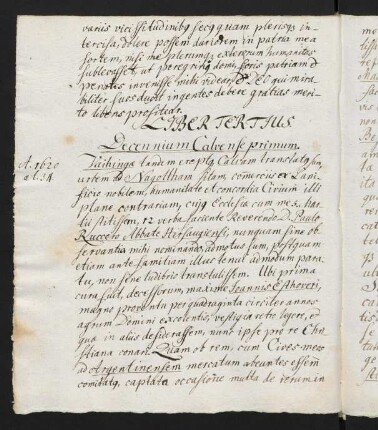 variis vicissitudinibq secq quam plerisqs in-
tercisa, dolere possem duriorem in patria mea
sortem, nisi me plerumq exterorum humanitas
sublevasset, ut peregrinq domi, foris patriam et
penates invenisse mihi videar. D&o qui mira-
biliter suos ducit ingentes debere gratias meri-
to libens profitear.
LIBER TERTIUS.
Decennium Calvense primum.
A. 1620
æt. 34.
Vaihinga tandem ereptq Calvam translatq sum,
urbem ad Nagoltham sitam, commerciis et Lani-
ficio nobilem, humanitate et concordia Civium illi
plane contrariam, cujq Ecclesiæ cum me x. har
lii stitissem, 12 verba faciente Reverendo D. Paulo
Ruckero Abbate Hirsaugiensi, nunquam sine ob-
servantia mihi nominando, admotus sum, postquam
etiam ante familiam illuc tenui admodum para-
tu, non sine ludibriis transtulissem. Ubi prima
cura fuit, decessorum, maxime Joannis Esthoferi,
magno proventu per quadraginta circiter annos
agrum Domini excolentis, vestigia recte legere, et
qua in aliis desiderassem, nunc ipse pro re Chri-
stiana conari. Quam ob rem, cum Cives meos
ad Argentinensem mercatum abeuntes essem
comitatq, captata occasione multa de rerum in